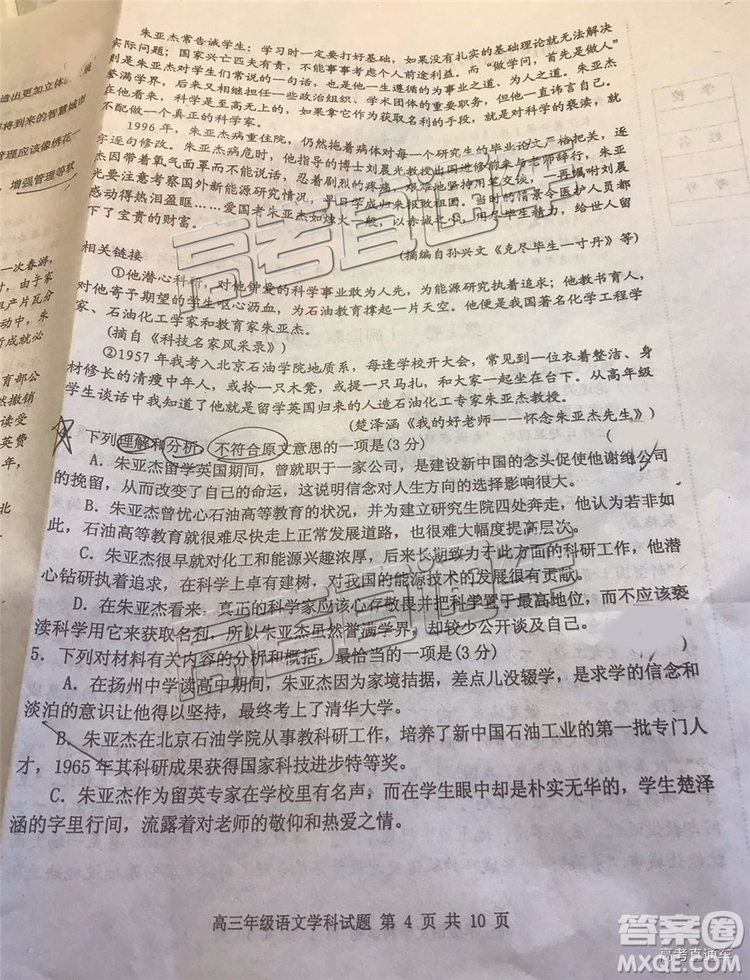 造出更加立体
即将到来的智慧城市
管理应该像绣花一
增强管理等软
一次春游,
朱亚杰常告诫学生:学习时一定要打好基础,如果没有扎实的基础理论就无法解决
实际问题;国家兴亡四夫有责,
誉满学界,后来又相继担任一些
在他看来,科学是至高无上的,如果拿它作为获取名利的手段,就是对科学的亵渎,就
不配做一个真正的科学家。
1996年,朱亚杰病重住院,仍然拖着病体,对每一个研究生的毕业论文严格把关,逐
字逐句修改。朱亚杰病危时,他指导的博士刘晨光教授出国进修前来与老师辞行,朱亚
杰因带着氧气面罩而不能说话,忍着剧烈的疼痛,艰难地坚持用笔交谈,一再叮嘱刘晨
光要注意考察国外新能源研究情况,早日学成归来报效祖国。当时的情景令医护人员都
感动得热泪盈眶……爱国老朱亚杰如烛火一般,以赤诚
下了宝贵的财富。
(摘编自孙兴文《克尽毕生一寸丹》等)
相关链接
①他潜心科研,对他钟爱的科学事业敢为人先,为能源研究开拓创新;他教书育人,
对他寄予期望的学生呕心沥血,为石油教育撑起一片天空。他便是我国著名化学工程学
家、石油化工学家和教育家朱亚杰。
(摘自《科技名家风采录》)
②1957年我考入北京石油学院地质系,每逢学校开大会,常见到一位衣着整洁、身
材修长的清瘦中年人,或拎一只木凳,或提一只马扎,和大家一起坐在台下。从高年级
学生谈话中我知道了他就是留学英国归来的人造石油化工专家朱亚杰教授。
(楚泽涵《我的好老师——怀念朱亚杰先生》)
下列理解和分析,不符合原文意思的一项是(3分)( )
A.朱亚杰留学英国期间,曾就职于一家公司,是建设新中国的念头促使他谢绝公司
的挽留,从而改变了自己的命运,这说明信念对人生方向的选择影重大。
B.朱亚杰忧心石油高等教育的状况,并为建立研究生院四处奔走,他认为若非如
此,石油高等教育就很难尽快走上正常发展道路,也很难大幅度提高层次。
C.朱亚杰很早就对化工和能源兴趣浓厚,后来长期致力于此方面的科研工作,他潜
心钻研执着追求,在科学上卓有建树,对我国的能源技术的发展很有贡献。
D.在朱亚杰看来,真正的科学家应该心存敬畏并把科学置于最高地位,而不应该亵
渎科学用它来获取名利,所以朱亚杰虽然誉满学界,却较少公开谈及自己。
5.下列对材料有关内容的分析和概括,最恰当的一项是(3分)( )
A.在扬州中学读高中期间,朱亚杰因为家境拮据,差点儿没辍学,是求学的信念和
淡泊的意识让他得以坚持,最终考上了清华大学。
B.朱亚杰在北京石油学院从事教科研工作,培养了新中国石油工业的第一批专门人
才,1965年其科研成果获得国家科技进步特等奖。
C.朱亚杰作为留英专家在学校里有名声,而在学生眼中却是朴实无华的,学生楚泽
涵的字里行间,流露着对老师的敬仰和热爱之情。
高三年级语文学科试题 第4页共10页
答案圈
MXQE.COM
高考直通车